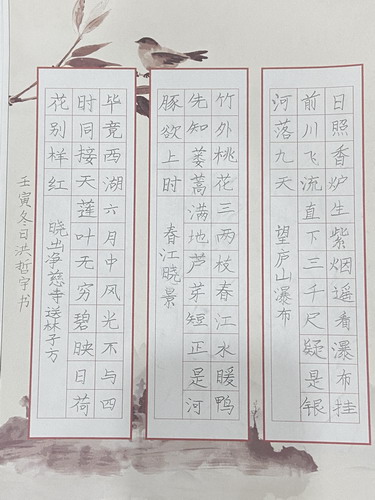 日照香炉生紫烟遥看瀑布挂
前川飞流直下三千尺疑是银
河落九天 望庐山瀑布
竹外桃花三两枝春江水暖鸭
先知蒌蒿满地芦芽短正是河
豚欲上时 春江晓景
毕竟西湖六月中风光不与四
时同接天莲叶无穷碧映日荷
花别样红 晓出净慈寺送林子方
壬寅冬日洪哲宇书